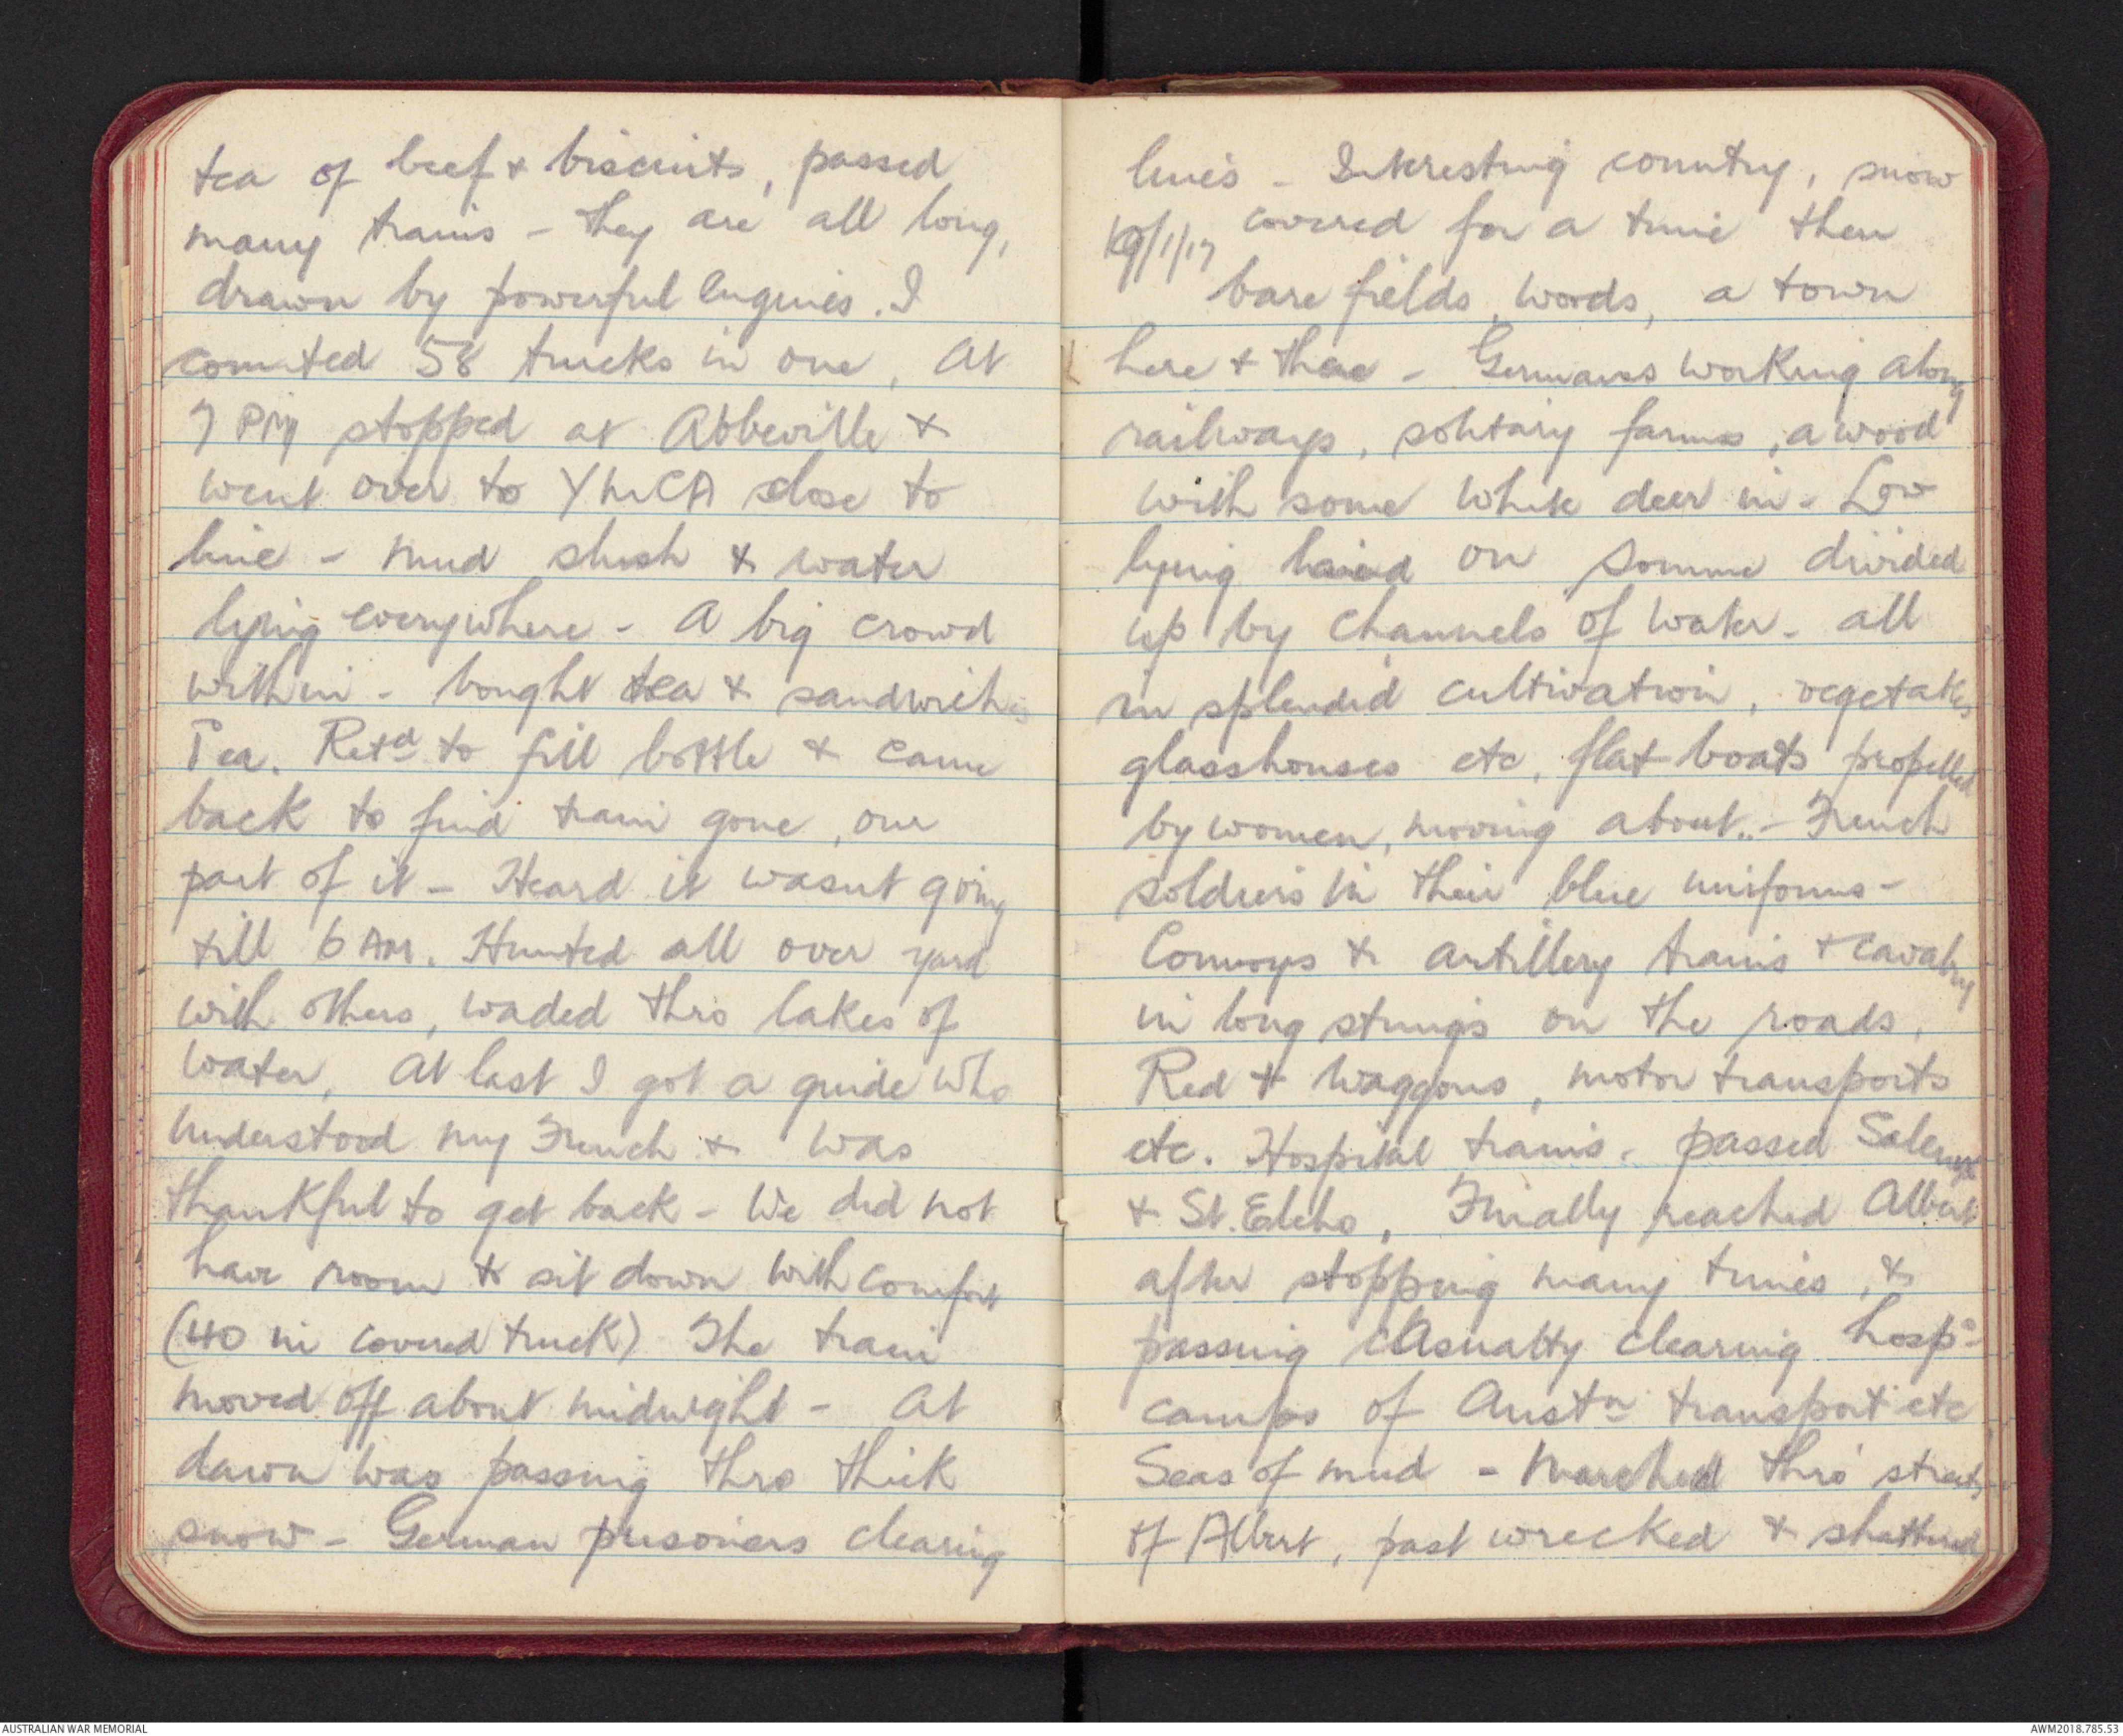 tea of beef & biscuits, passed
many trains - they are all long,
drawn by powerful engines. I
counted 58 trucks in one, At
7 PM stopped at Abbeville &
went over to YMCA close to
line - mud slush & water
lying everywhere - A big crowd
within - bought tea & sandwiches
Tea. Retd to fill bottle & came
back to find train gone, our
part of it - Heard it wasnt going
till 6 AM. Hunted all over yard
with others, waded thro lakes of
water, At last I got a guide who
understood my French & was
thankful to get back - We did not
have room to sit down with comfort
(40 in covered truck) The train
moved off about midnight - At
dawn was passing thro thick
snow - German prisoners clearing
lines - Interesting country, snow
covered for a time then
19/1/17
bare fields, woods, a town
here & there - Germans working along
railways, solitary farms, a wood
with some white deer in - Low
lying land on Somme divided
up by channels of water - all
in splendid cultivation, vegetables
glasshouses etc, flat boats propelled
by women, moving about.. - French
soldiers in their blue uniforms -
Convoys & artillery trains & cavalry
in long strings on the roads.
Red + waggons, motor transports
etc. Hospital trains. passed
& St. Finally reached Albert
after stopping many times, &
passing casualty clearing hosp:
camps of Austn transport etc
Seas of mud - Marched thro' streets
of Albert, past wrecked & shattered
AUSTRALIAN WAR MEMORIAL
AWM2018.785.53